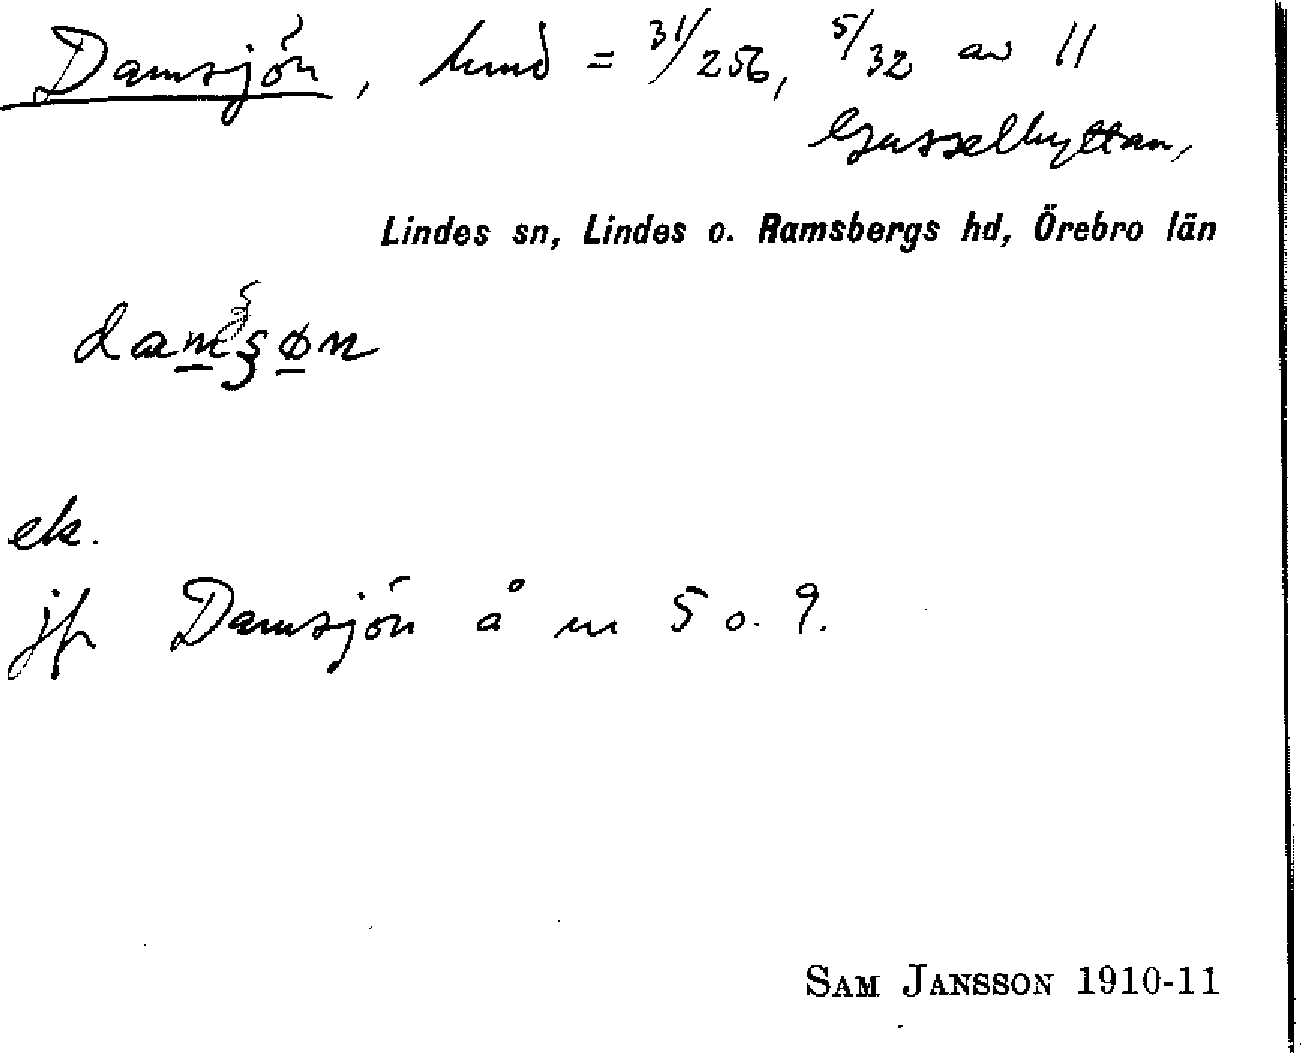 Damsjön, hmd = 31/256, 5/32 av 11
Gusselhyttan,
Lindes sn, Lindes o. Ramsbergs hd, Örebro län
ek.
jfr Damsjön å nr 5 o. 9.
SAM JANSSON 1910-11